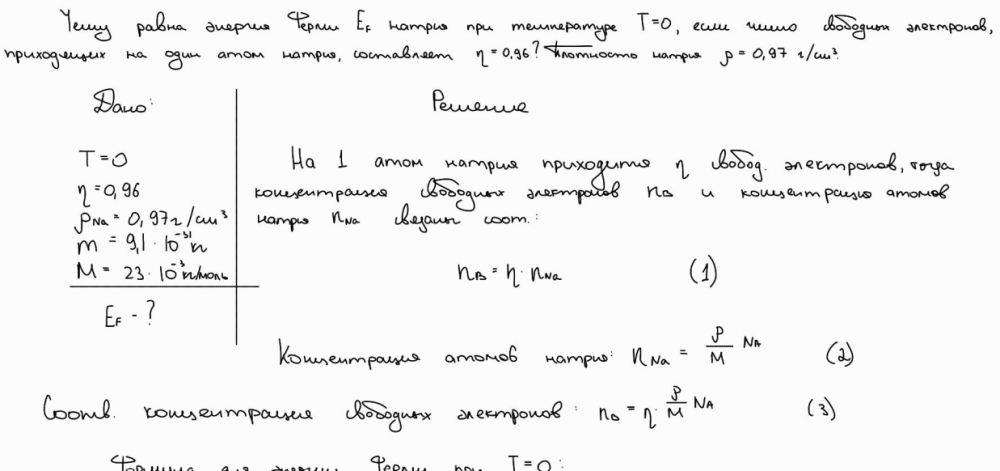 Чему равна энергия Ферми E_F натрия при температуре T=0, если число свободных электронов,
приходящихся на один атом натрия, составляет η=0,96? Плотность натрия ρ=0,97 г/см³.
Дано:
Решение
T=0
η=0,96
ρ_Na=0,97г/см³
m=9,1·10⁻³¹кг
M=23·10⁻³кг/моль
E_F - ?
На 1 атом натрия приходится η свобод. электронов, тогда
концентрация свободных электронов n_B и концентрация атомов
натрия n_Na связаны соот.:
n_B = η · n_Na (1)
Концентрация атомов натрия: n_Na = ρ/M N_A (2)
Соотв. концентрация свободных электронов: n_B = η · ρ/M N_A (3)
Формула для энергии Ферми при T=0: